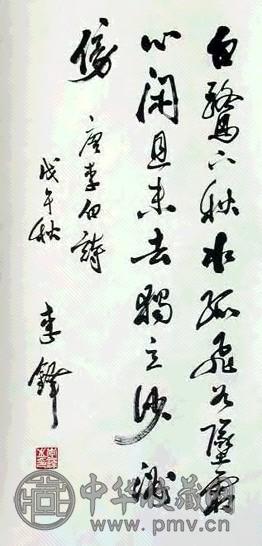 白鷺下秋水孤飛如墜霜
心閑且未去獨立沙洲
傍
唐李白詩
戊午秋 李鋒
中华收藏网
www.pmv.cn